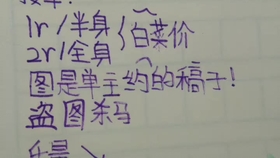 1r/半身
2r/全身 } 白菜价
图是单主约的稿子!
盗图杀马